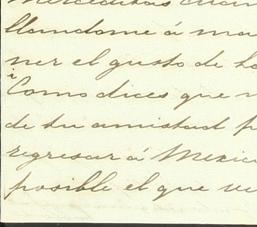 Mercedita
llandome á ma
ner el gusto de ha
¿Como dices que
de tu amistad p
regresar á Mexic
posible el que ve